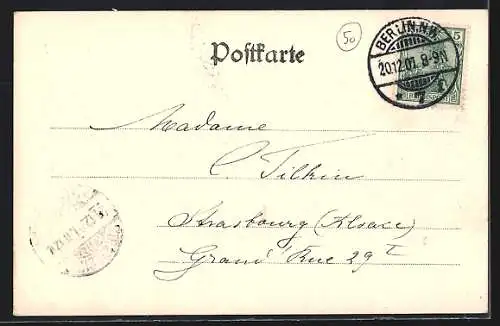 50
BERLIN.N.W.
5
20.12.01. 8-9N.
7
Postkarte
Madame
C. Tilkin
Strasbourg (Alsace)
Grand' Rue 29 I